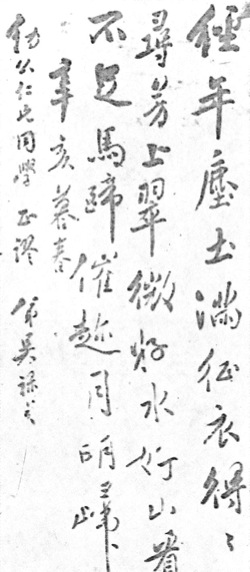 經年塵土滿征衣得〻
尋芳上翠微好水好山看
不足馬蹄催趁月明歸
辛亥暮春
公仁兄同學 正謬 弟吳祿貞